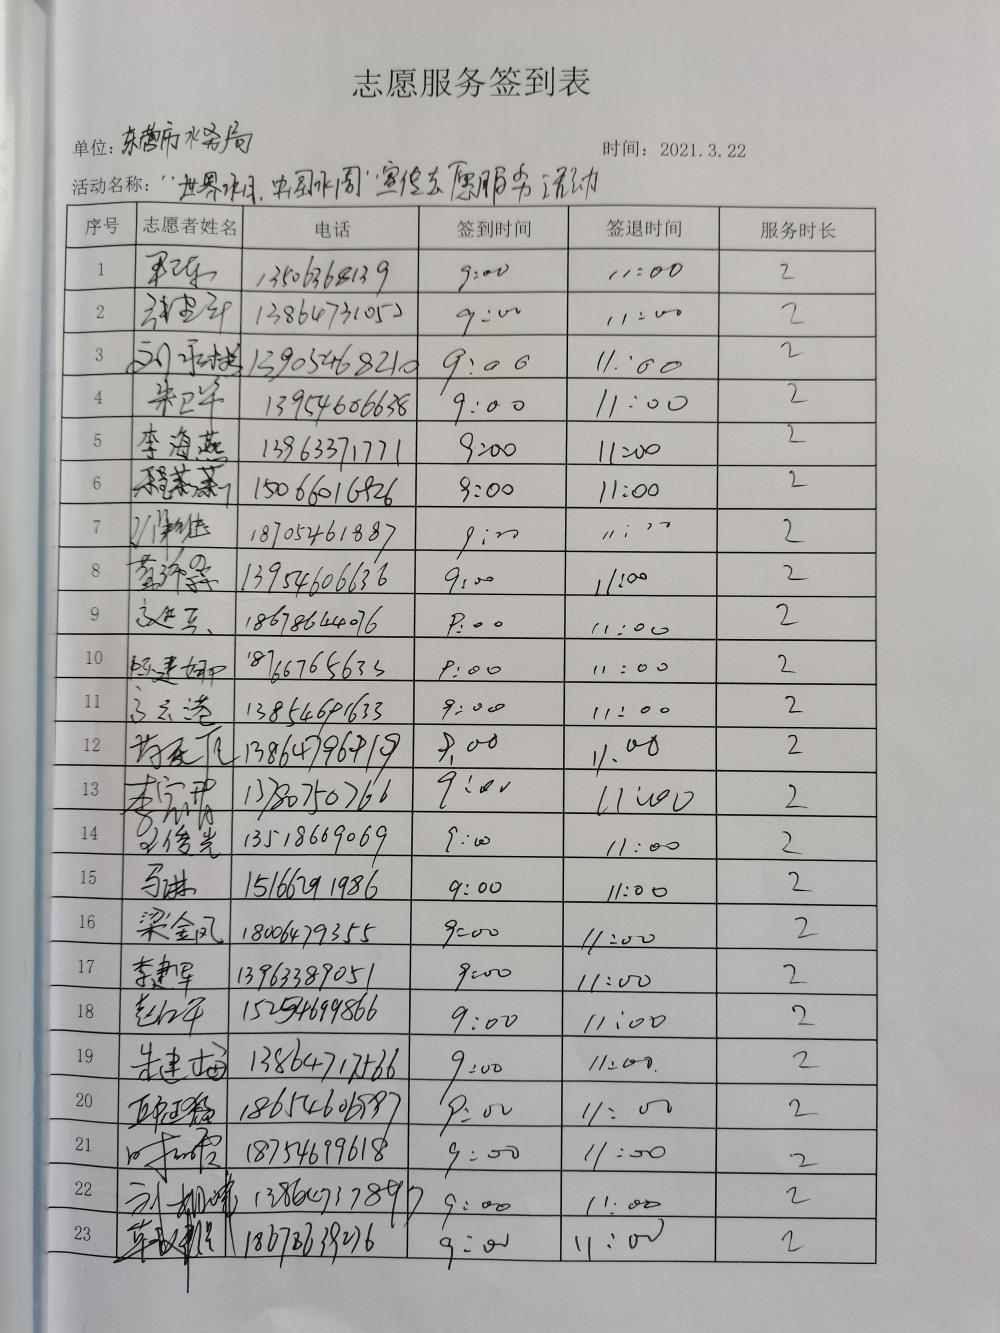 志愿服务签到表
单位：东营市水务局 时间：2021.3.22
活动名称："世界水日、中国水周"宣传志愿服务活动
序号 志愿者姓名 电话 签到时间 签退时间 服务时长
1 13506368139 9:00 11:00 2
2 13864731052 9:00 11:00 2
3 13905468210 9:00 11:00 2
4 朱卫军 13954606638 9:00 11:00 2
5 李海燕 13963371771 9:00 11:00 2
6 程莱莱 15066016926 9:00 11:00 2
7 18705461887 9:00 11:00 2
8 13954606636 9:00 11:00 2
9 18678644076 9:00 11:00 2
10 18766765633 9:00 11:00 2
11 9:00 11:00 2
12 9:00 11:00 2
13 13780750766 9:00 11:00 2
14 王俊光 13518669069 9:00 11:00 2
15 马琳 15166291986 9:00 11:00 2
16 梁金凤 18006479355 9:00 11:00 2
17 李建军 13963389051 9:00 11:00 2
18 15254699866 9:00 11:00 2
19 朱建梅 9:00 11:00 2
20 9:00 11:00 2
21 18754699618 9:00 11:00 2
22 13864737897 9:00 11:00 2
23 18678639236 9:00 11:00 2